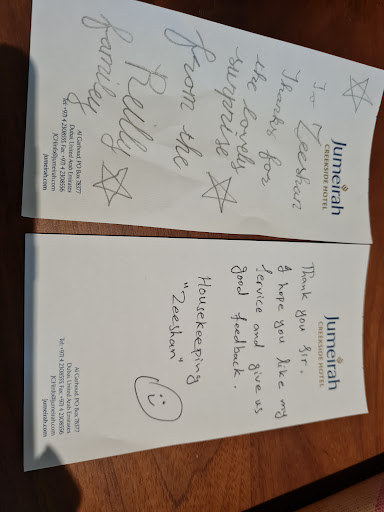 Jumeirah
CREEKSIDE HOTEL
To Zeeshan
Thanks for
the lovely
surprise
from the
Reilly
family
Al Garhoud, PO Box 78377
Dubai, United Arab Emirates
Tel: +971 4 2308555 Fax: +971 4 2308556
JCHinfo@jumeirah.com
jumeirah.com
Jumeirah
CREEKSIDE HOTEL
Thank you sir.
I hope you like my
service and give us
good feedback.
Housekeeping
"Zeeshan"
Al Garhoud, PO Box 78377
Dubai, United Arab Emirates
Tel: +971 4 2308555 Fax: +971 4 2308556
JCHinfo@jumeirah.com
Jumeirah.com